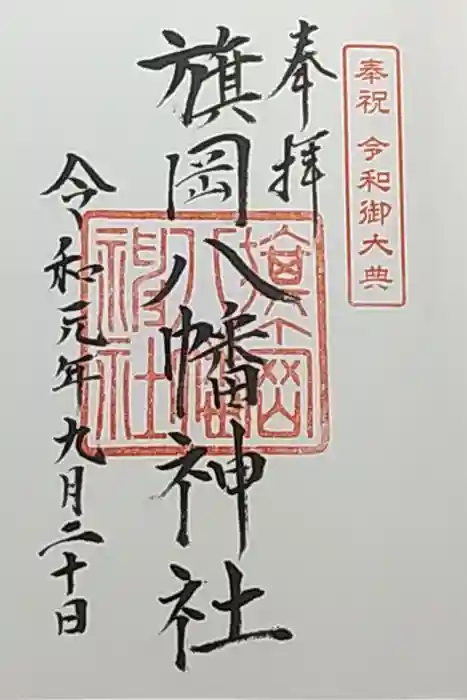 奉祝 令和御大典
奉拝
旗岡八幡神社
令和元年九月二十日